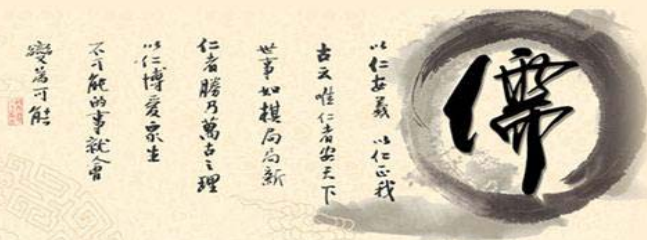 儒
以仁安義 以仁正我
古云惟仁者安天下
世事如棋局局新
仁者勝乃萬古之理
以仁博愛眾生
不可能的事就會
變為可能